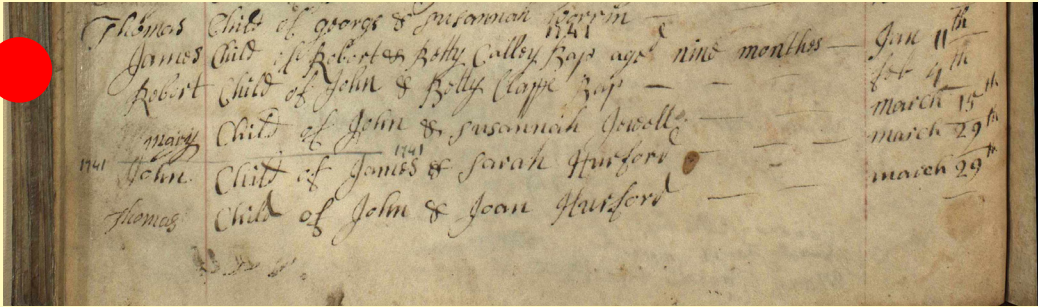 Thomas Child of george & Susannah Perrin
1741
James Child of Robert & Betty Calley Bap age nine months Jan 11th
Robert Child of John & Betty Clapp Bap feb 4th
mary Child of John & Susannah Jewell march 15th
1741 1741
John Child of James & Sarah Hurford march 29th
Thomas Child of John & Joan Hurford march 29th